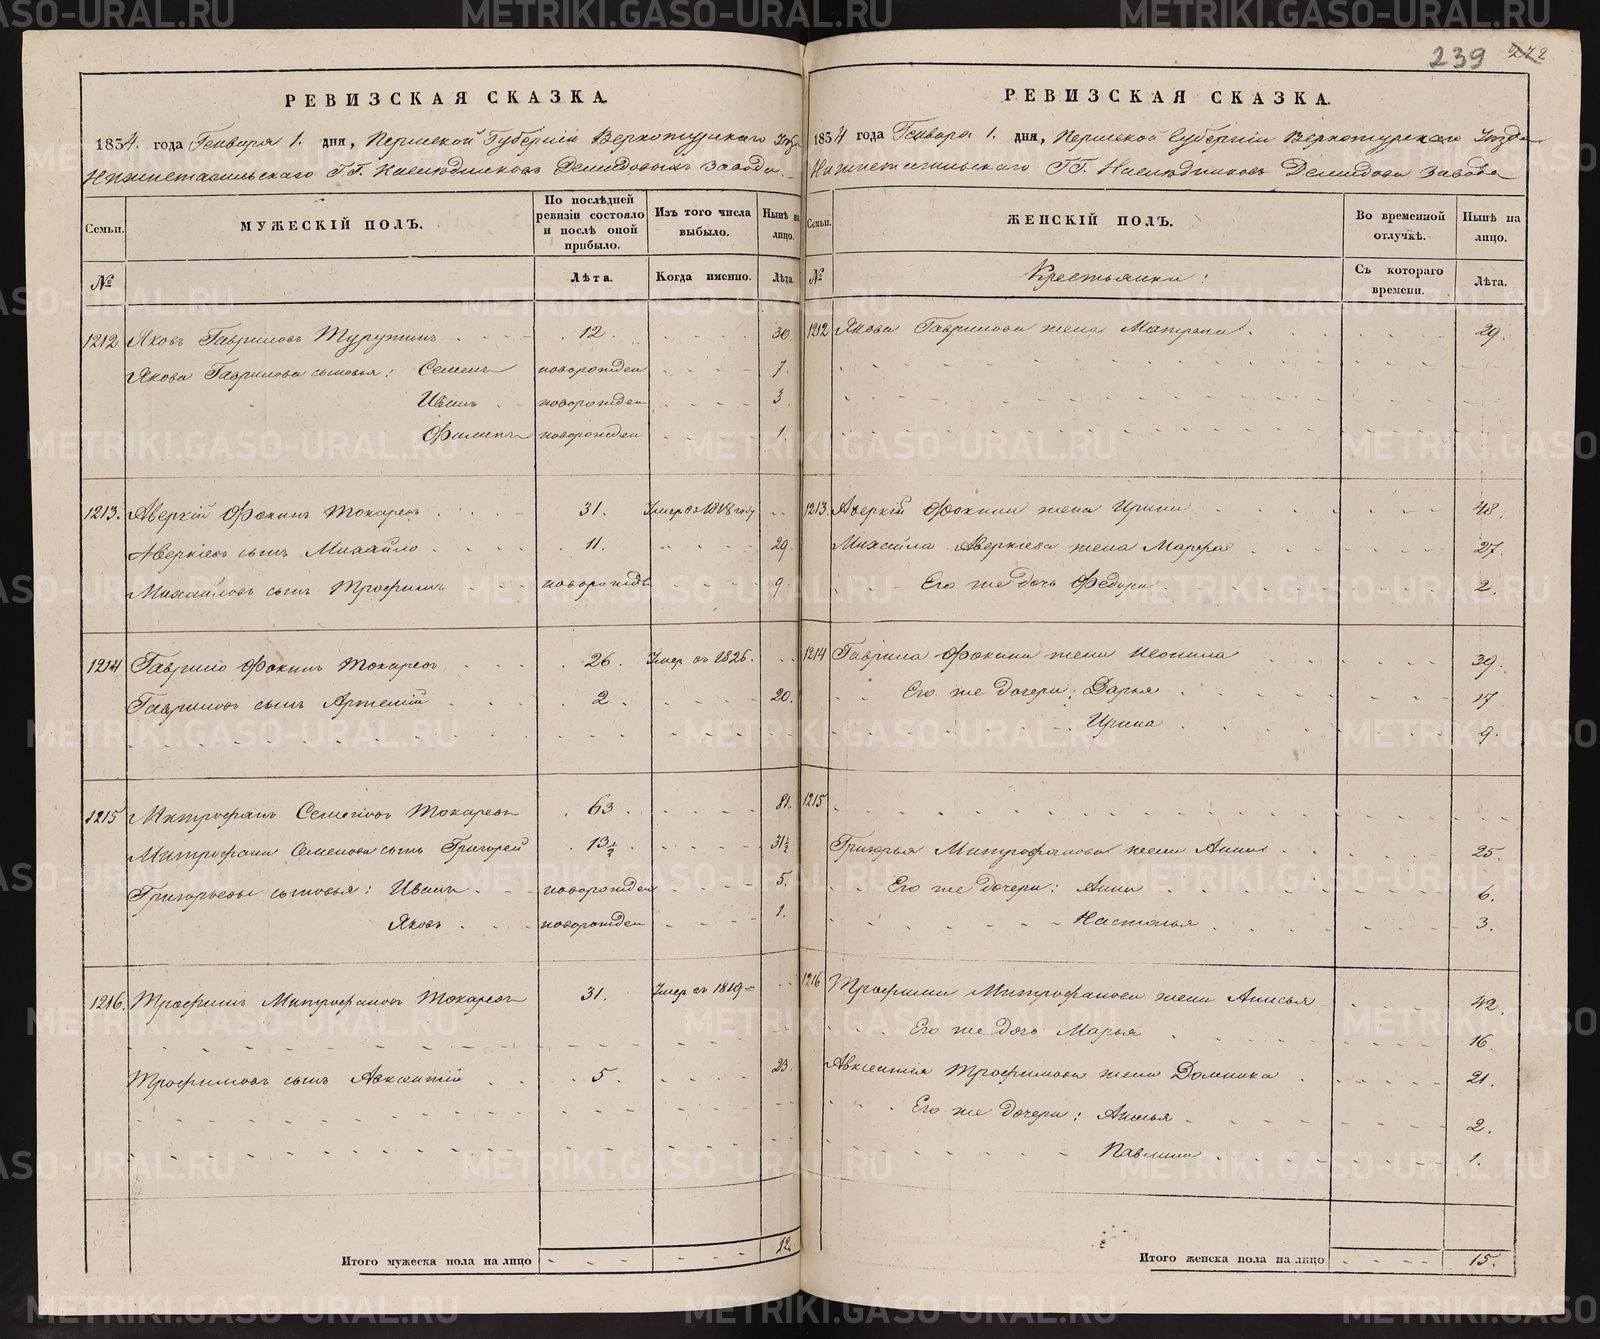 239 272
РЕВИЗСКАЯ СКАЗКА
1834. года Генваря 1. дня, Пермской Губернiи Верхотурскаго Уѣзда
Нижнетагильскаго ГГ. Наслѣдниковъ Демидовыхъ завода.
Семьи.
МУЖЕСКIЙ ПОЛЪ.
По послѣдней ревизiи состояло и послѣ оной прибыло.
Изъ того числа выбыло.
Нынѣ на лицо.
№
Лѣта.
Когда именно.
Лѣта.
1212 Яковъ Гавриловъ 12. 30
Якова Гаврилова сыновья: Семенъ новорожден 7.
Иванъ новорожден 3.
Филипъ новорожден 1.
1213. Аверкiй Фокинъ Токаревъ 31. Умер въ 1818 году
Аверкiевъ сынъ Михайло 11. 29.
Михайловъ сынъ Трофимъ новорожд 9.
1214 Гаврило Фокинъ Токаревъ 26. Умер въ 1826.
Гавриловъ сынъ Артемiй 2. 20.
1215 Митрофанъ Семеновъ Токаревъ 63 81.
Митрофана Семенова сынъ Григорей 13½ 31½
Григорьевы сыновья: Иванъ новорожден 5.
Яковъ новорожден 1.
1216. Трофимъ Митрофановъ Токаревъ 31. Умер въ 1819
Трофимовъ сынъ Авксентiй 5. 23.
Итого мужеска пола на лицо 12.
РЕВИЗСКАЯ СКАЗКА.
1834 года Генваря 1. дня, Пермской Губернiи Верхотурскаго Уѣзда
Нижнетагильскаго ГГ. Наслѣдниковъ Демидова завода
Семьи.
ЖЕНСКIЙ ПОЛЪ.
Во временной отлучкѣ.
Нынѣ на лицо.
№
Крестьянки:
Съ котораго времени.
Лѣта.
1212 Якова Гаврилова жена Матрена 29.
1213. Аверкiя Фокина жена Ирина 48.
Михайла Аверкiева жена Марфа 27.
Его же дочь Федора 2.
1214 Гаврила Фокина жена 39.
Его же дочери: Дарья 17
Ирина 9.
1215
Григорья Митрофанова жена Анна 25.
Его же дочери: Анна 6.
Настасья 3.
1216 Трофима Митрофанова жена Анисья 42.
Его же дочь Марья 16
Авксентiя Трофимова жена Домника 21.
Его же дочери: Анисья 2.
Павлина 1.
Итого женска пола на лицо 15.
METRIKI.GASO-URAL.RU